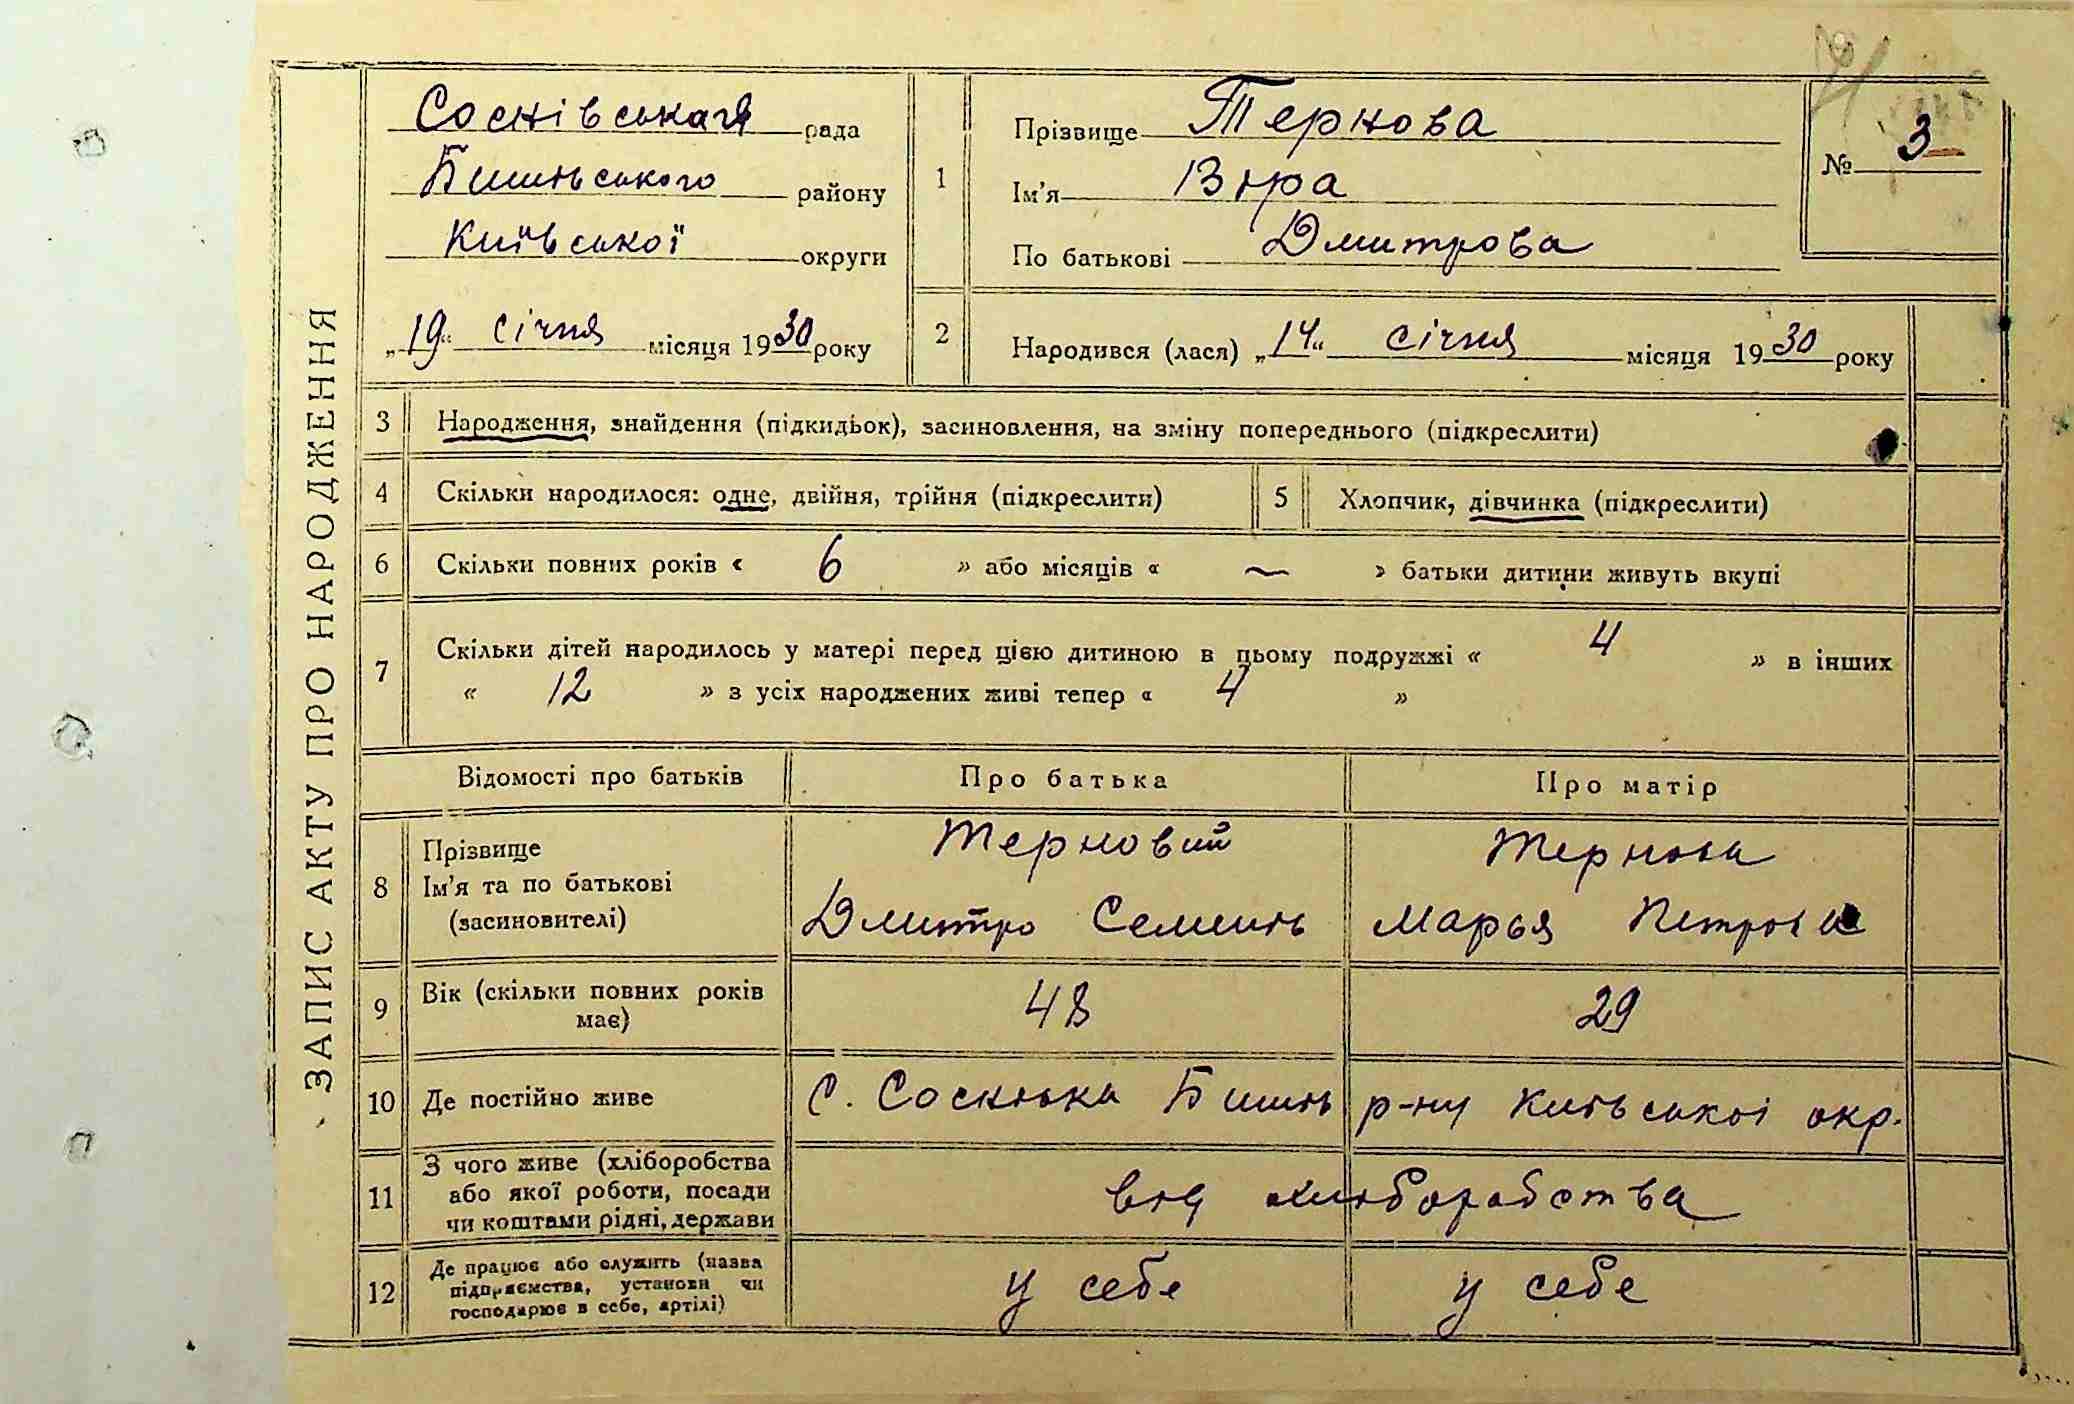 ЗАПИС АКТУ ПРО НАРОДЖЕННЯ
Соснівськая рада
Бишівського району
Київської округи
„19“ січня місяця 1930 року
1
Прізвище Тернова
Ім’я Віра
По батькові Дмитрова
№ 3
2
Народився (лася) „14“ січня місяця 1930 року
3 Народження, знайдення (підкидьок), засиновлення, на зміну попереднього (підкреслити)
4 Скільки народилося: одне, двійня, трійня (підкреслити)
5 Хлопчик, дівчинка (підкреслити)
6 Скільки повних років « 6 » або місяців « — » батьки дитини живуть вкупі
7 Скільки дітей народилось у матері перед цією дитиною в цьому подружжі « 4 » в інших
« 12 » з усіх народжених живі тепер « 4 »
Відомості про батьків Про батька Про матір
8 Прізвище
Ім’я та по батькові
(засиновителі)
Терновий
Дмитро Семень
Тернова
Марья Петрова
9 Вік (скільки повних років
має)
48 29
10 Де постійно живе С. Соснівка Бишів р-ну Київської окр.
11 З чого живе (хліборобства
або якої роботи, посади
чи коштами рідні, держави
від хліборобства
12 Де працює або служить (назва
підприємства, установи чи
господарює в себе, артілі)
у себе у себе